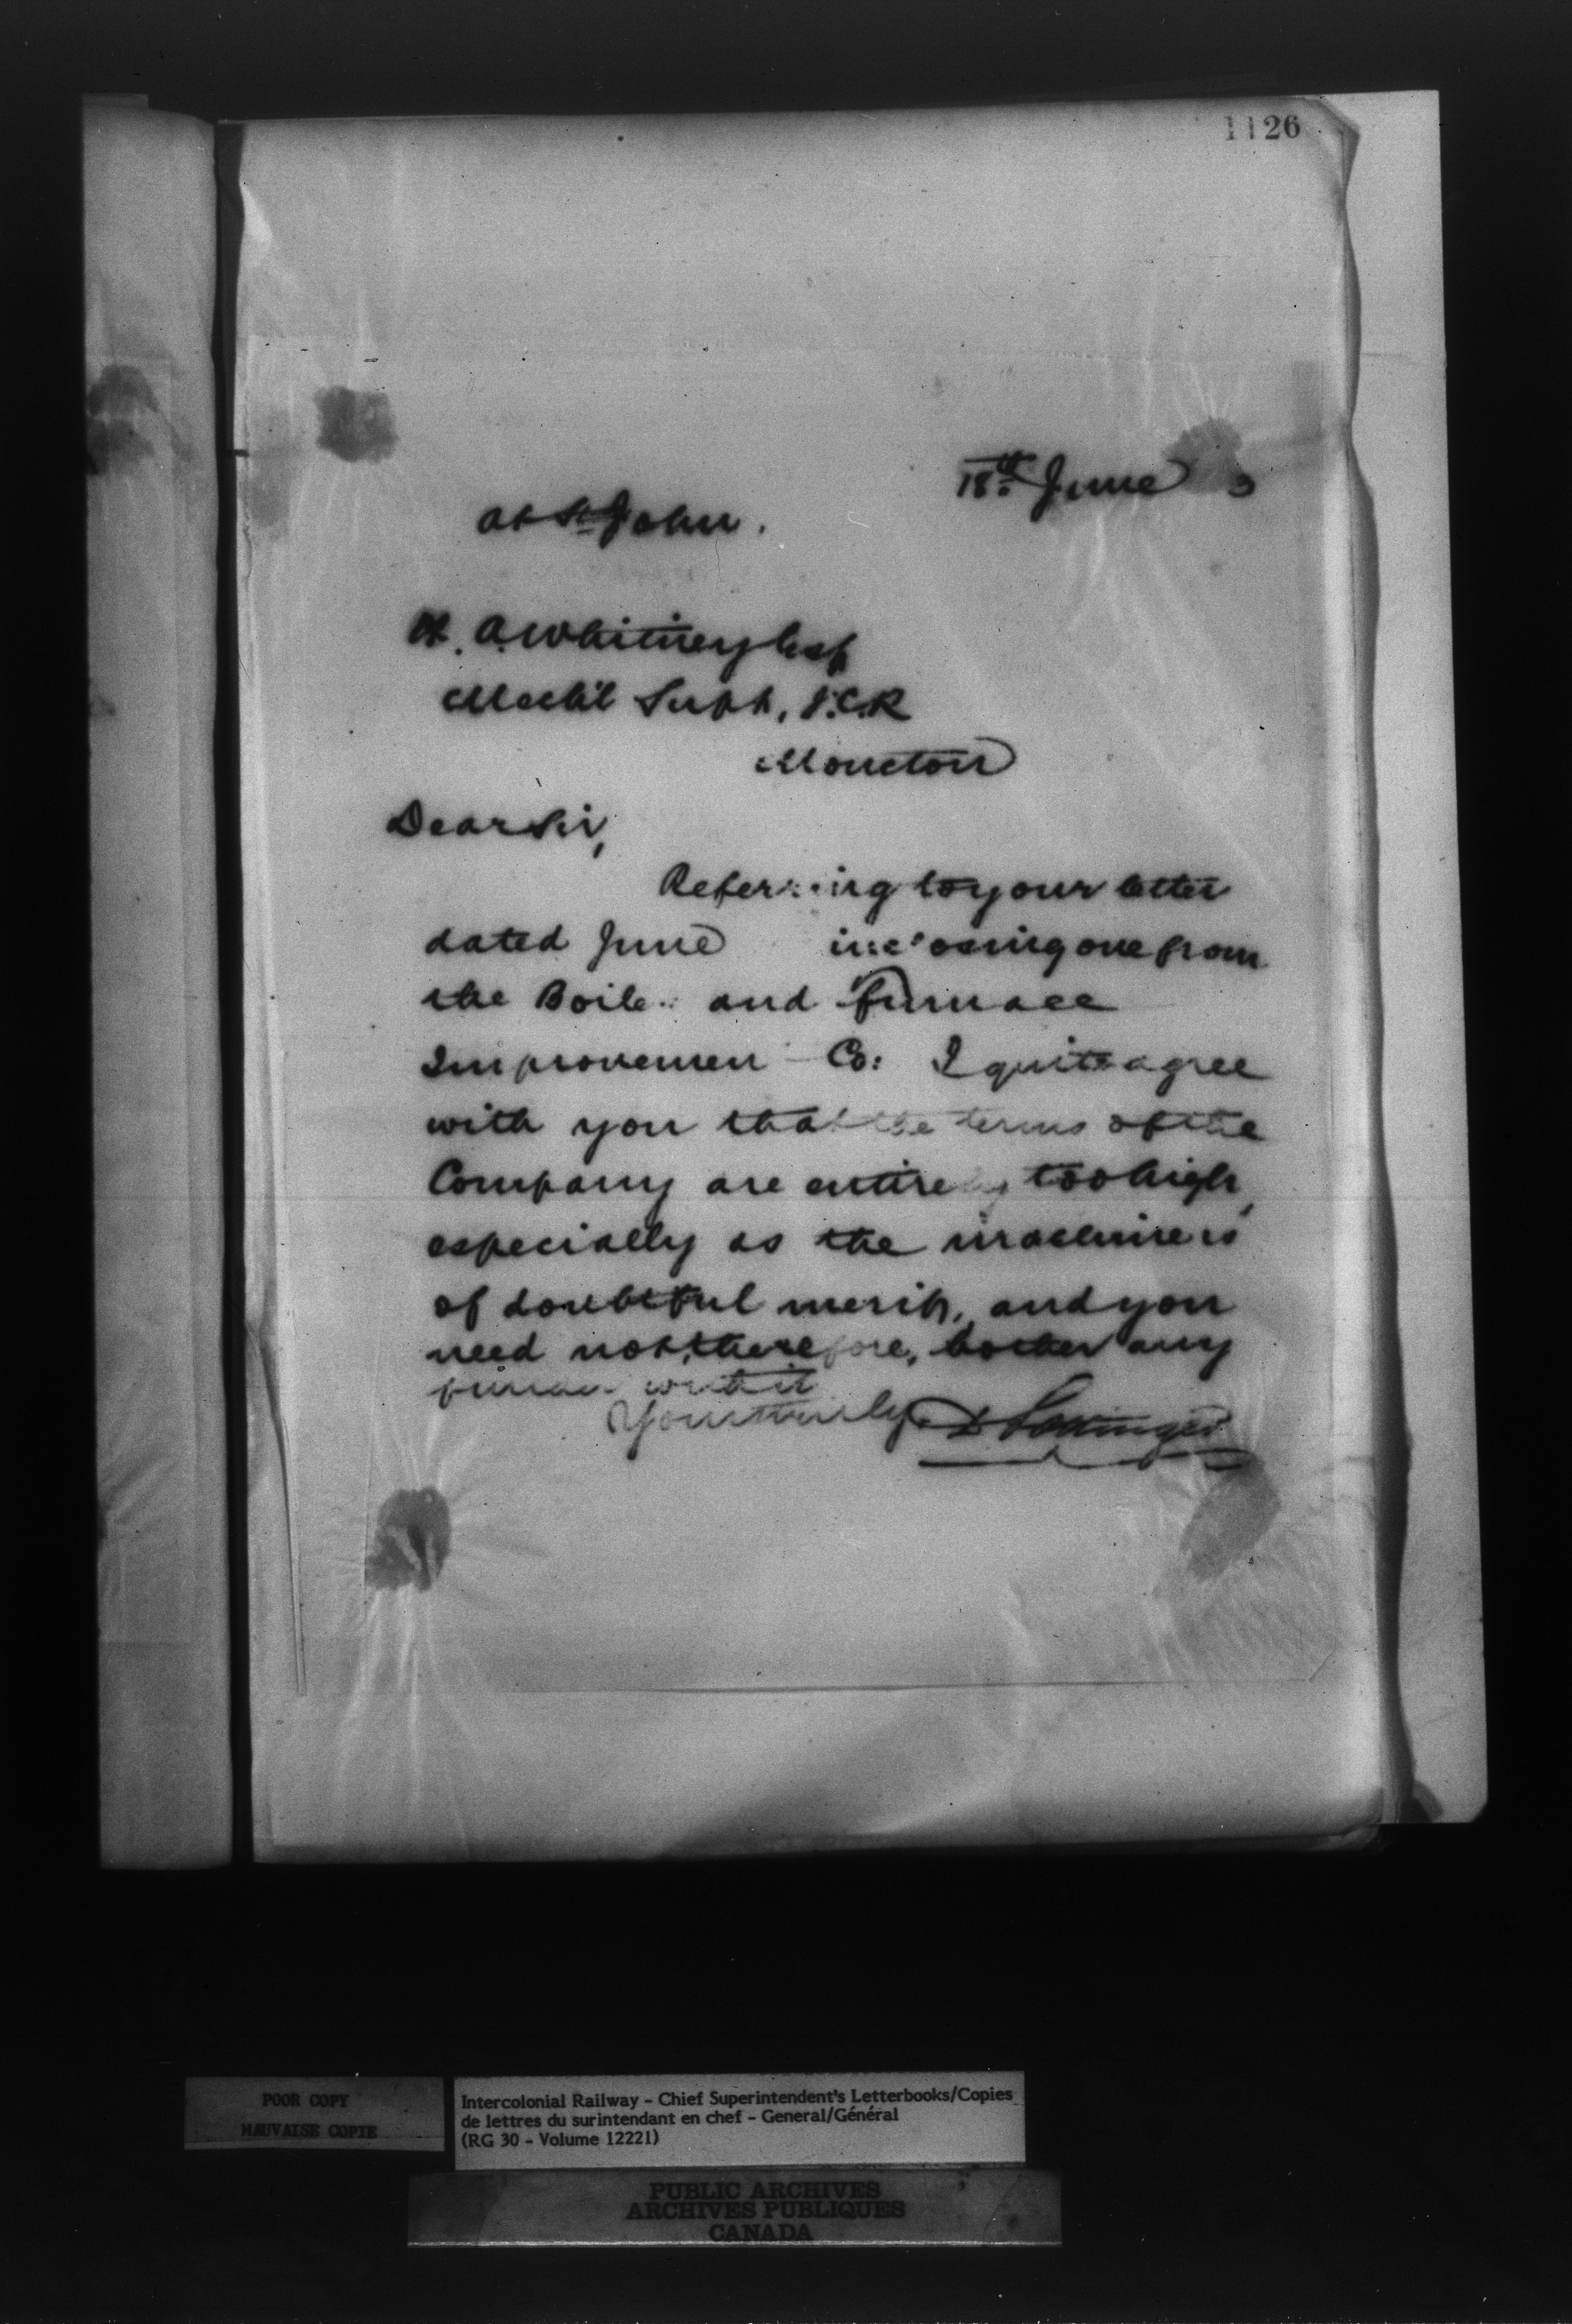 1126
18th June 3
at St John.
H. A. Whitney Esq
Mech'l Supt, I.C.R
Moncton
Dear Sir,
Referring to your letter
dated June inclosing one from
the Boiler and Furnace
Improvement Co: I quite agree
with you that the terms of the
Company are entirely too high,
especially as the machine is
of doubtful merit, and you
need not, therefore, bother any
further with it
Yours truly D Pottinger
POOR COPY
MAUVAISE COPIE
Intercolonial Railway - Chief Superintendent's Letterbooks/Copies
de lettres du surintendant en chef - General/Général
(RG 30 - Volume 12221)
PUBLIC ARCHIVES
ARCHIVES PUBLIQUES
CANADA